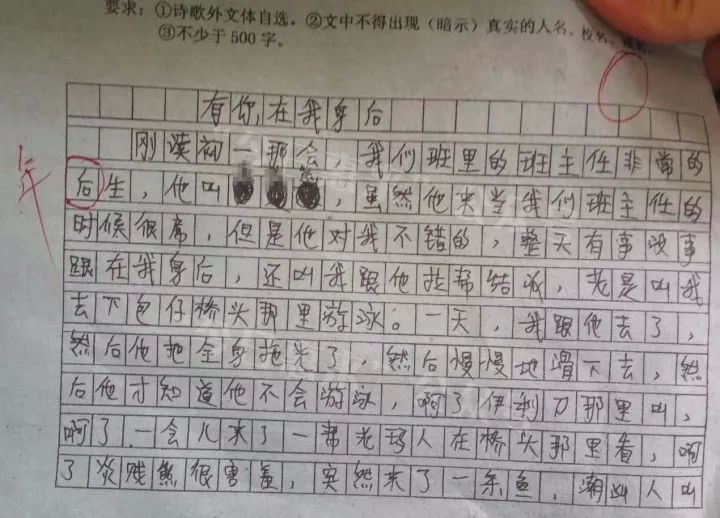 要求：①诗歌外文体自选。②文中不得出现（暗示）真实的人名、校名、
③不少于500字。
有你,在我身后
刚读初一那会，我们班里的班主任非常的
年
后生，他叫，虽然他来当我们班主任的
时候很席，但是他对我不错的，整天有事没事
跟在我身后，还叫我跟他拉帮结派，老是叫我
去下包仔桥头那里游泳。一天，我跟他去了，
然后他把全身拖光了，然后慢慢地滑下去，然
后他才知道他不会游泳，啊了伊利刀那里叫，
啊了一会儿来了一帮老玛人在桥头那里看，啊
了炎贱熊很害羞，突然来了一条鱼，潮叫人叫